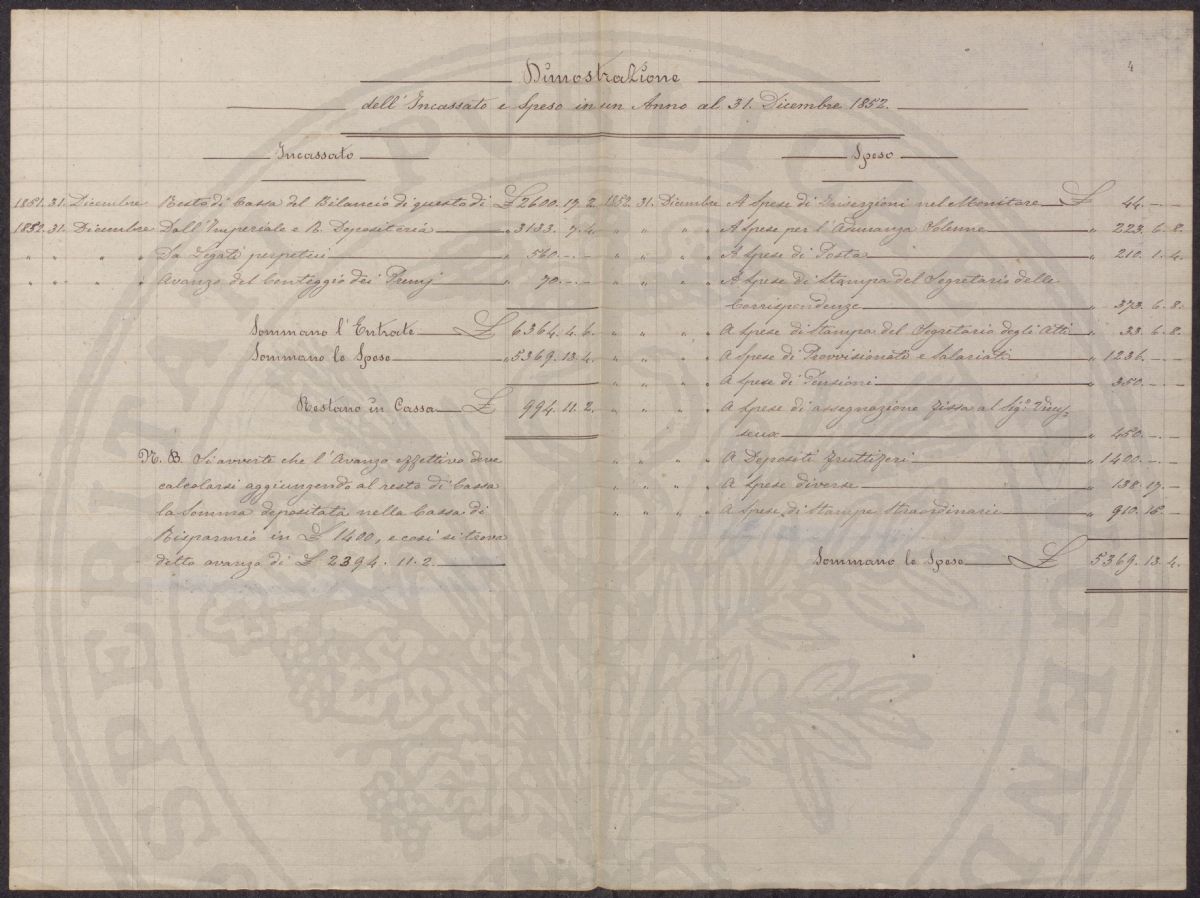 4
Dimostrazione
dell'Incassato e Speso in un Anno al 31. Dicembre 1852.
Incassato
1851. 31. Dicembre Resto di Cassa del Bilancio di questo dì £ 2600. 17. 2.
1852. 31. Dicembre Dall'Imperiale e R. Depositeria " 3133. 7. 4.
" " " " Da Legati perpetui " 560. -. -
" " " " Avanzo del Conteggio dei Premj " 70. -. -
Sommano l'Entrate £ 6364. 4. 6.
Sommano le Spese " 5369. 13. 4.
Restano in Cassa £ 994. 11. 2.
N. B. Si avverte che l'Avanzo effettivo deve
calcolarsi aggiungendo al resto di Cassa
la Somma depositata nella Cassa di
Risparmio in £ 1400, e così si trova
detto avanzo di £ 2394. 11. 2.
Speso
1852. 31. Dicembre A Spese di Inserzioni nel Monitore £ 44. - -
" " " " A Spese per l'Adunanza Solenne " 223. 6. 8.
" " " " A Spese di Posta " 210. 1. 4.
" " " " A Spese di Stampa del Segretario delle
Corrispondenze " 373. 6. 8.
" " " " A Spese di Stampa del Segretario degli Atti " 33. 6. 8.
" " " " A Spese di Provvisionati e Salariati " 1236. - -
" " " " A Spese di Pensioni " 350. - -
" " " " A Spese di assegnazione fissa al Sigr. Vieus-
seux " 450. - -
" " " " A Depositi fruttiferi " 1400. - -
" " " " A Spese diverse " 138. 17. -
" " " " A Spese di Stampe Straordinarie " 910. 15. -
Sommano le Spese £ 5369. 13. 4.
SPERITATI PUBLICAE AUGENDAE